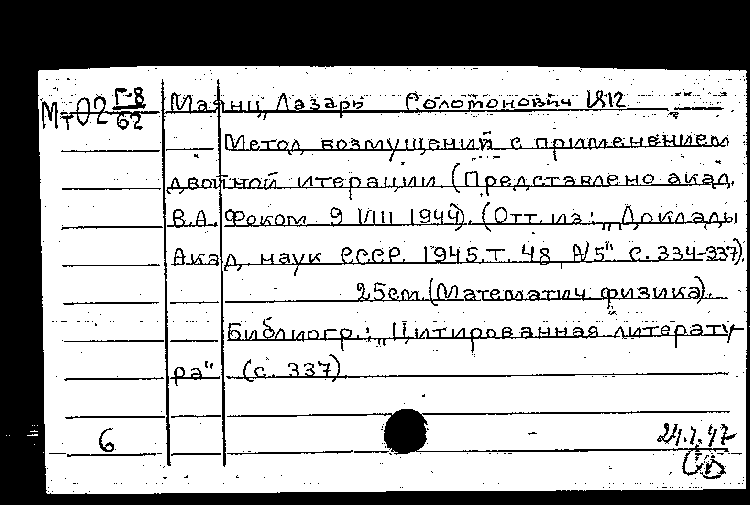 Мт02 Г-8/62 Маянц, Лазарь Соломонович 1912
Метод возмущений с применением
двойной итерации. (Представлено акад.
В.А. Фоком 9 VIII 1944). (Отт. из: „Доклады
Акад. наук СССР. 1945. Т. 48, №5" с. 334-337).
25см. (Математич. физика).
Библиогр.: „Цитированная литерату-
ра" (с. 337)
6
24.2.47